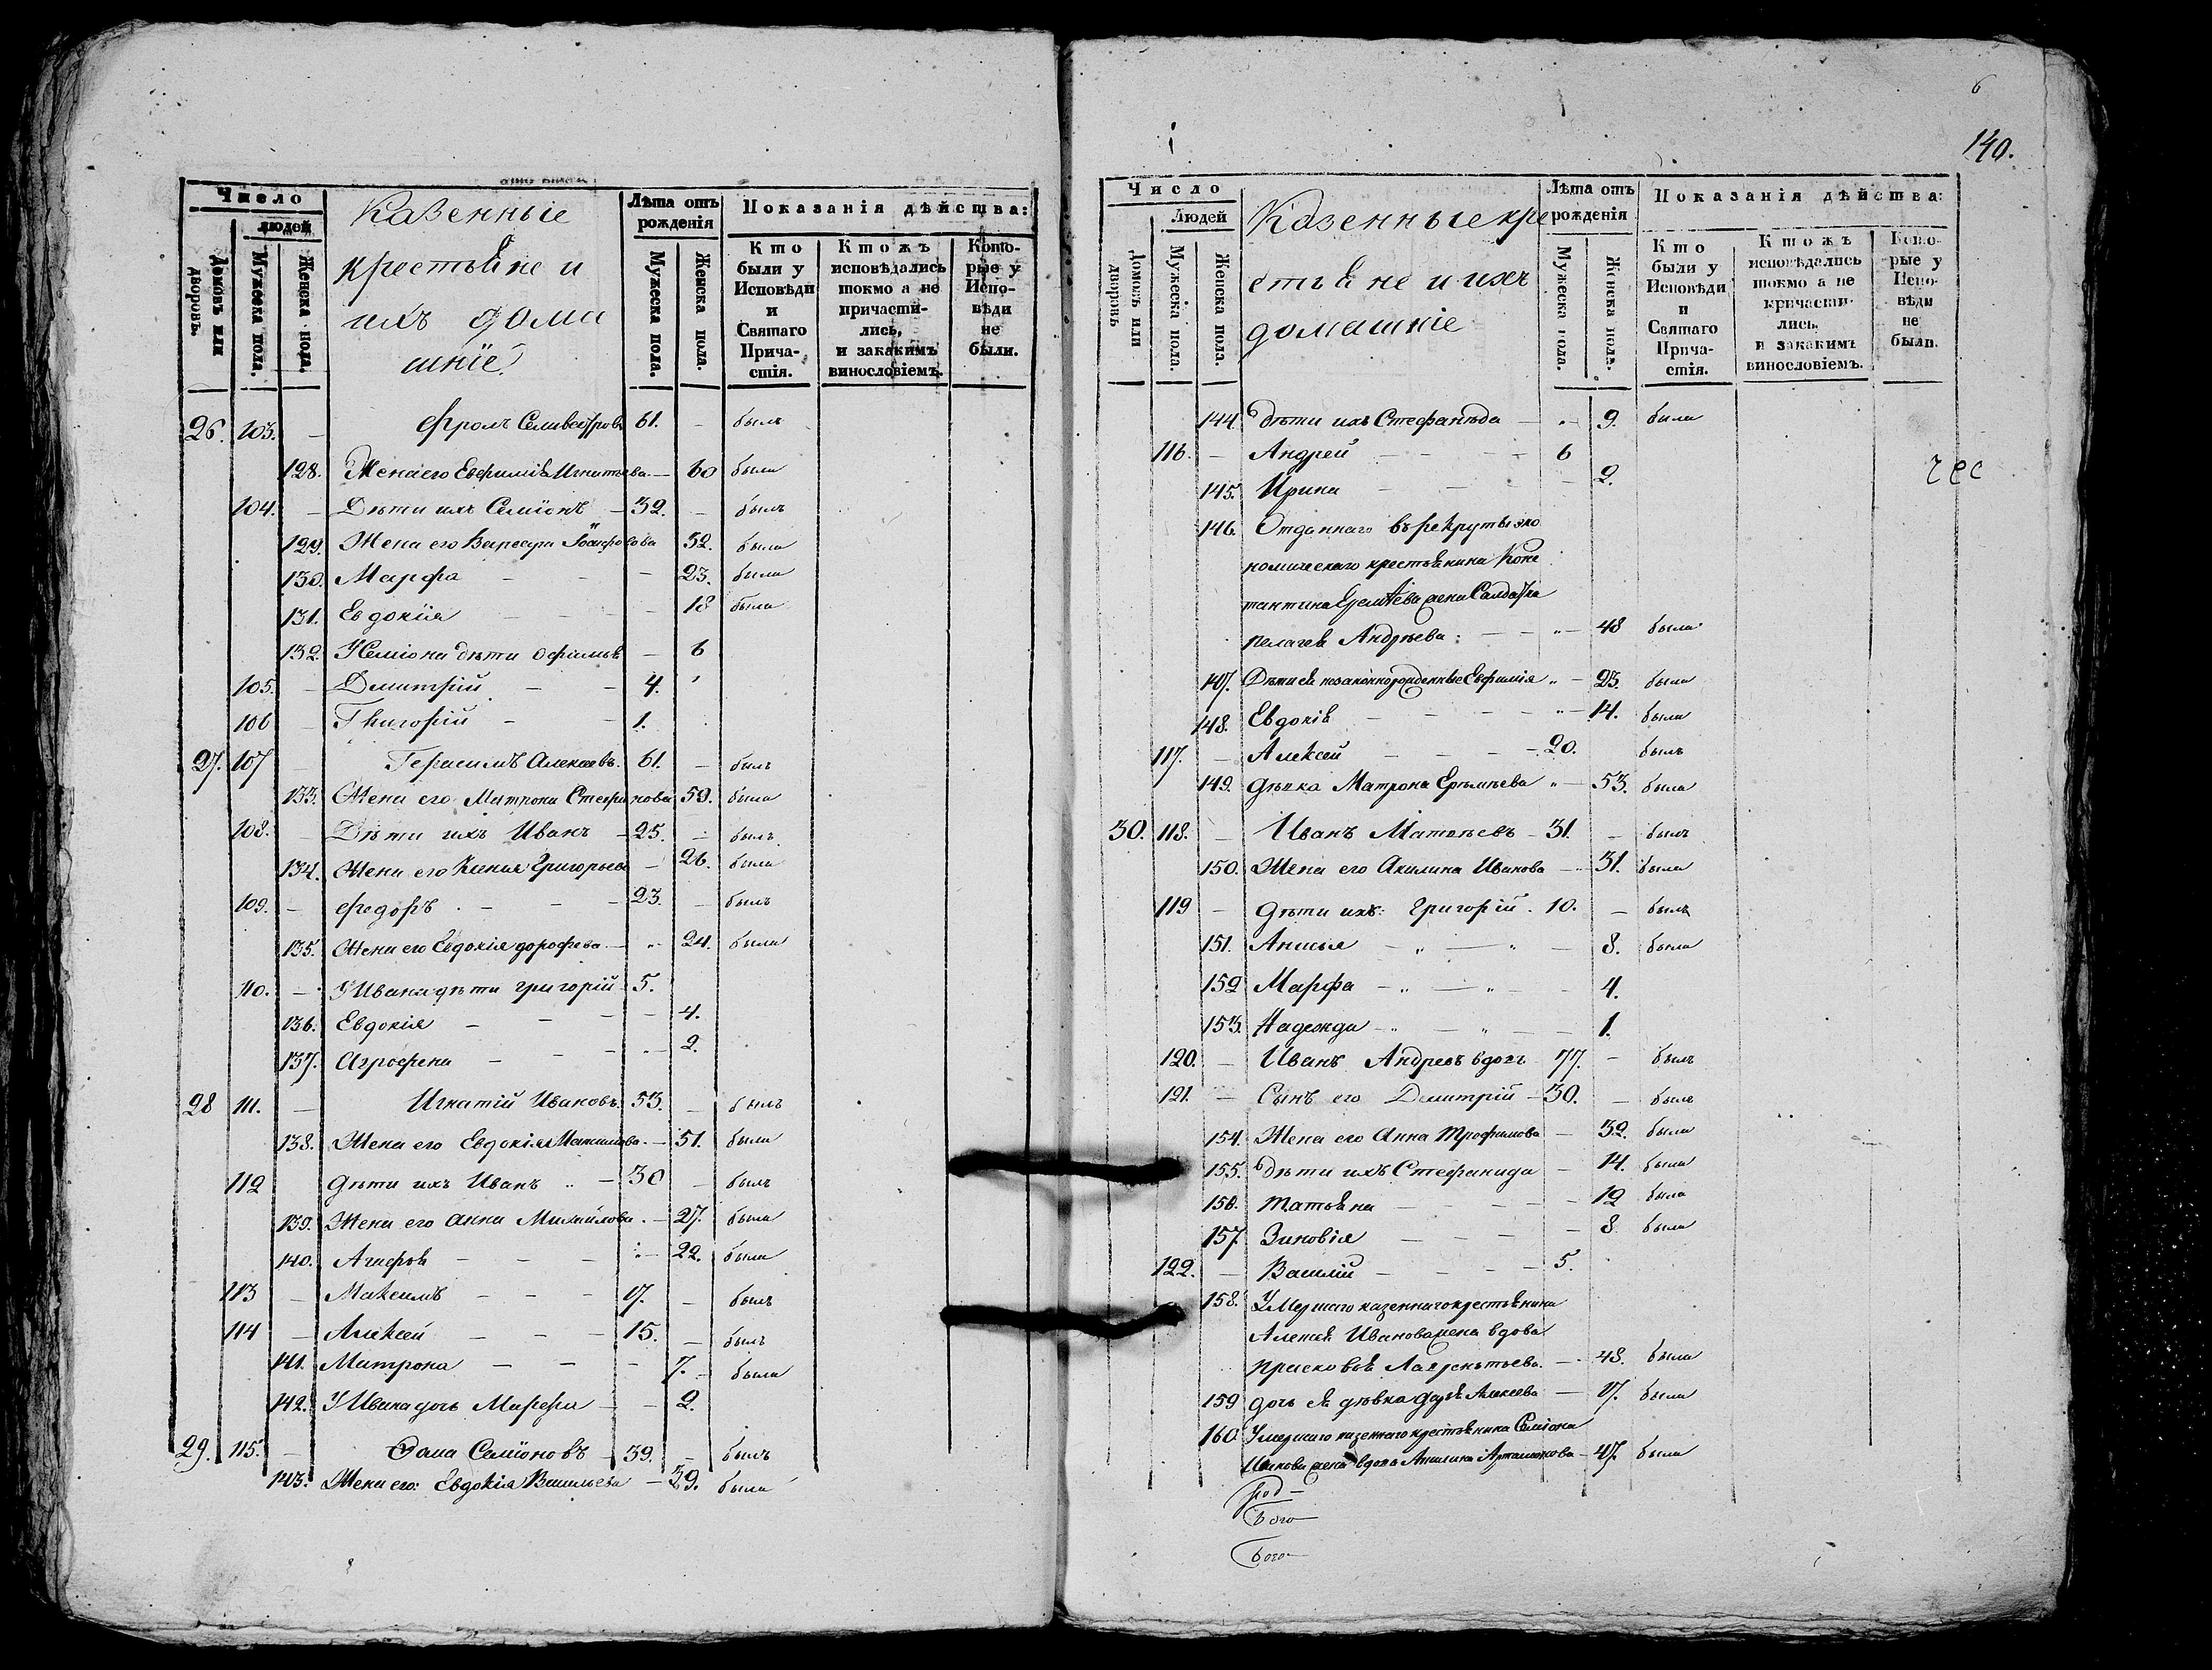 Число
людей
Домовъ или дворовъ.
Мужеска пола.
Женска пола.
Казенныіе
крестьяне и
ихъ дома
шніе
Лѣта отъ рожденія
Мужеска пола.
Женска пола.
Показанія дѣйства:
Кто были у Исповѣди и Святаго Причастія.
Ктожъ исповѣдались токмо а не причастились, и закакимъ винословіемъ.
Которые у Исповѣди не были.
26. 103. — Фролъ Селивестровъ 61. — былъ
128. Жена его Евфимія Игнатьева — 60 была
104. — Дѣти ихъ Семіонъ — 32. — былъ
129. Жена его Варвара 32. была
130. Марфа — — — 23. была
131. Евдокія — — — 18 была
132. У Семіона дѣти Офимья — 6
105. — Дмитрій — — 4.
106 — Григорій — — 1.
27. 107 — Герасимъ Алексеевъ. 61. — былъ
133. Жена его Матрона Стефанова 59. была
108. — Дѣти ихъ Иванъ — 25. — былъ
134. Жена его Ксенья Григорьева — 26. была
109. — Федоръ — — — 23. — былъ
135. Жена его Евдокія дорофеева — 24. была
110. — У Ивана дѣти григорій 5.
136. Евдокія — — — — 4.
137. Агрофена — — — — 2.
28 111. — Игнатій Ивановъ. 53. — былъ
138. Жена его Евдокія Максимова. — 51. была
112 дѣти ихъ Иванъ — 30 — былъ
139. Жена его анна Михайлова. — 27. была
140. Агафья — — — — 22. была
113 — Максимъ — — — 17. — былъ
114 — Алексей — — — 15. — былъ
141. Матрона — — — 7. — была
142. У Ивана дочь Марфа — — 2.
29. 115. — Фома Семіоновъ — 39. — былъ
143. Жена его: Евдокія Васильева — 39. была
6
140.
Число
Людей
Домовъ или дворовъ
Мужеска пола.
Женска пола.
Казенные кре
стьяне и ихъ
домашніе
Лѣта отъ рожденія
Мужеска пола.
Женска пола.
Показанія дѣйства:
Кто были у Исповѣди и Святаго Причастія.
Ктожъ исповѣдались токмо а не причастились, и закакимъ винословіемъ.
Которые у Исповѣди не были.
144. дѣти ихъ Стефанѣда — 9. была
116. — Андрей — — — 6
145. Ирина — — — — 2.
146. Отданнаго въ рекруты эко
номическаго крестьянина Конс
тантина Еремѣева жена Салдатка
пелагея Андрѣева: — — 48 была
147. Дѣти ея незаконнорожденные Евфимія — 23. была
148. Евдокія — — — — 14. была
117. — Алексей — — — 20. былъ
149. дѣвка Матрона Ерѣмѣева — 53. была
30. 118. — Иванъ Матвѣевъ — 31. — былъ
150. Жена его Акилина Иванова — 31. была
119 — дѣти ихъ: Григорій. 10. — былъ
151. Анисья — — — 8. была
152 Марфа — — — 4.
153. Надежда — — — — 1.
120. — Иванъ Андревъ вдовъ 77. — былъ
121. — Сынъ его Димитрій — 30. — былъ
154. Жена его Анна Трофимова — 32. была
155. дѣти ихъ Стефанида — 14. была
156. Татьяна — — — — 12 была
157 Зиновія — — — — 8. была
122. — Василій — — — — 5.
158. Умершаго казеннаго крестьянина
Алексея Иванова жена вдова
прасковья Лаврентьева. — 48. была
159 дочь ея дѣвка дарья Алексеева — 17. была
160 Умершаго казеннаго крестьянина Семіона
Иванова жена вдова Акилина Артамонова — 47. была